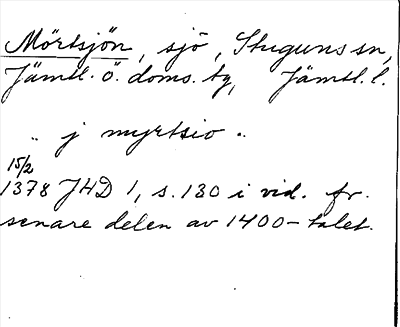 Mörtsjön, sjö, Stuguns sn,
Jämtl. ö. doms. tg, Jämtl. l.
„ j myrtsio „
15/2
1378 JHD 1, s. 130 i vid. fr.
senare delen av 1400-talet.